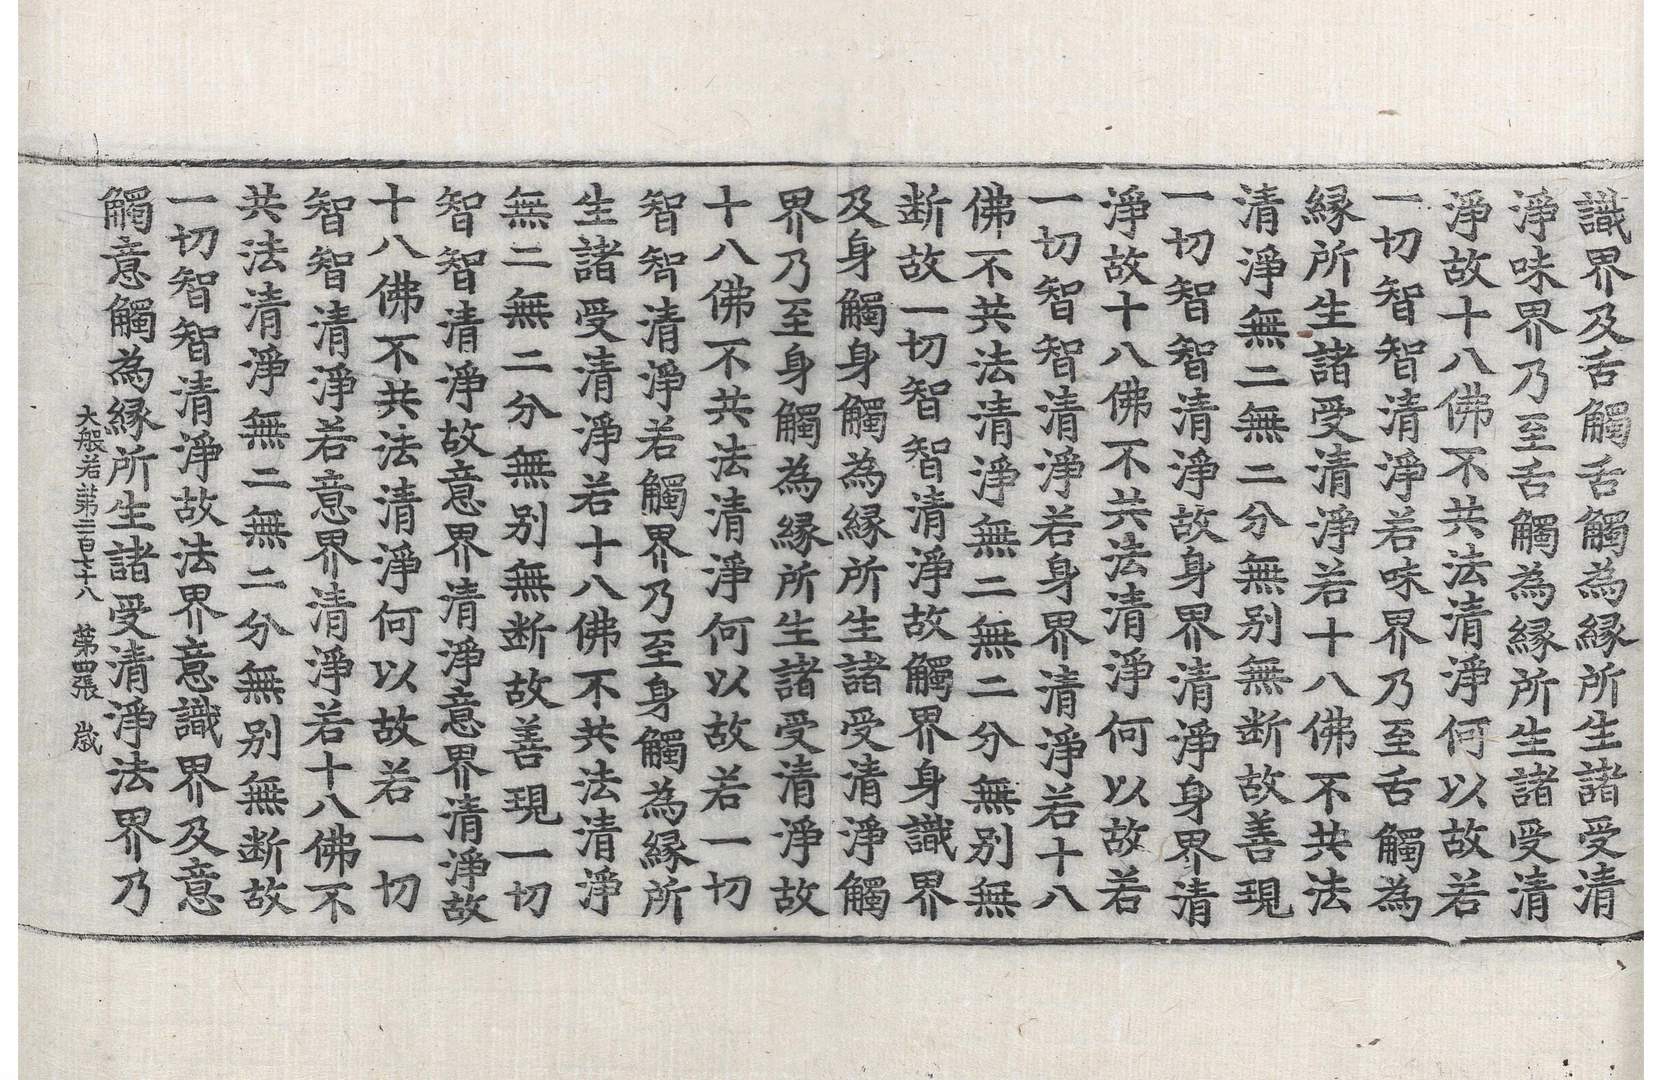 識界及舌觸舌觸為縁所生諸受清
淨味界乃至舌觸為縁所生諸受清
淨故十八佛不共法清淨何以故若
一切智智清淨若味界乃至舌觸為
縁所生諸受清淨若十八佛不共法
清淨無二無二分無别無断故善現
一切智智清淨故身界清淨身界清
淨故十八佛不共法清淨何以故若
一切智智清淨若身界清淨若十八
佛不共法清淨無二無二分無别無
断故一切智智清淨故觸界身識界
及身觸身觸為縁所生諸受清淨觸
界乃至身觸為縁所生諸受清淨故
十八佛不共法清淨何以故若一切
智智清淨若觸界乃至身觸為縁所
生諸受清淨若十八佛不共法清淨
無二無二分無别無断故善現一切
智智清淨故意界清淨意界清淨故
十八佛不共法清淨何以故若一切
智智清淨若意界清淨若十八佛不
共法清淨無二無二分無别無断故
一切智智清淨故法界意識界及意
觸意觸為縁所生諸受清淨法界乃
大般若第二百七十八 第四張 歲